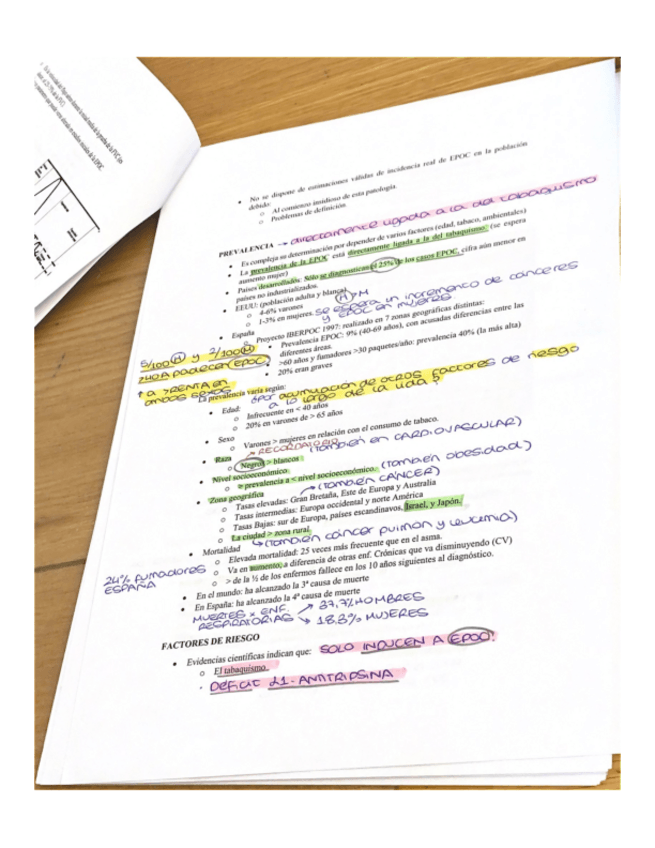 No se dispone de estimaciones válidas de incidencia real de EPOC en la población
debido:
Al comienzo insidioso de esta patología.
Problemas de definición.
PREVALENCIA → directamente ligada a la del tabaquismo
Es compleja su determinación por depender de varios factores (edad, tabaco, ambientales)
La prevalencia de la EPOC está directamente ligada a la del tabaquismo. (se espera
aumento mujer)
Países desarrollados: Sólo se diagnostican el 25% de los casos EPOC, cifra aún menor en
países no industrializados.
EEUU: (población adulta y blanca)
4-6% varones
1-3% en mujeres. se espera un incremento de cánceres
y EPOC en mujeres
España
Proyecto IBERPOC 1997: realizado en 7 zonas geográficas distintas:
Prevalencia EPOC: 9% (40-69 años), con acusadas diferencias entre las
diferentes áreas.
>60 años y fumadores >30 paquetes/año: prevalencia 40% (la más alta)
20% eran graves
5/100 H y 2/100 M
>40A PADECEN EPOC
↑ a >RENTA EN
AMBOS SEXOS
La prevalencia varía según:
por acumulación de otros factores de riesgo
a lo largo de la vida
Edad:
Infrecuente en < 40 años
20% en varones de > 65 años
Sexo
Varones > mujeres en relación con el consumo de tabaco.
RECORDATORIO
(también en CARDIOVASCULAR)
Raza
Negros > blancos
Nivel socioeconómico
> prevalencia a < nivel socioeconómico. (también obesidad)
Zona geográfica → (también CÁNCER)
Tasas elevadas: Gran Bretaña, Este de Europa y Australia
Tasas intermedias: Europa occidental y norte América
Tasas Bajas: sur de Europa, países escandinavos, Israel, y Japón.
La ciudad > zona rural.
(también cáncer pulmón y leucemia)
Mortalidad
Elevada mortalidad: 25 veces más frecuente que en el asma.
Va en aumento, a diferencia de otras enf. Crónicas que va disminuyendo (CV)
> de la ½ de los enfermos fallece en los 10 años siguientes al diagnóstico.
24% fumadores
ESPAÑA
En el mundo: ha alcanzado la 3ª causa de muerte
En España: ha alcanzado la 4ª causa de muerte
MUERTES x ENF. → 37,7% HOMBRES
RESPIRATORIAS → 18,3% MUJERES
FACTORES DE RIESGO
Evidencias científicas indican que: SOLO INDUCEN A EPOC!
El tabaquismo
DÉFICIT α1-ANTITRIPSINA